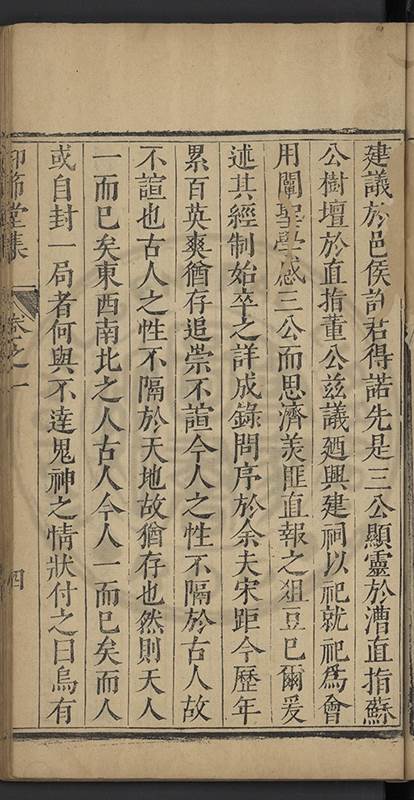 建議於邑侯許君得諾先是三公顯靈於漕直指蘇
公樹壇於直指董公茲議廼興建祠以祀就祀爲會
用闡聖學感三公而思濟羨匪直報之俎豆已爾爰
述其經制始卒之詳成錄問序於余夫宋距今歷年
累百英爽猶存追崇不諠今人之性不隔於古人故
不諠也古人之性不隔於天地故猶存也然則天人
一而已矣東西南北之人古人今人一而已矣而人
或自封一局者何與不達鬼神之情狀付之曰烏有
仰節堂集 卷之一 四